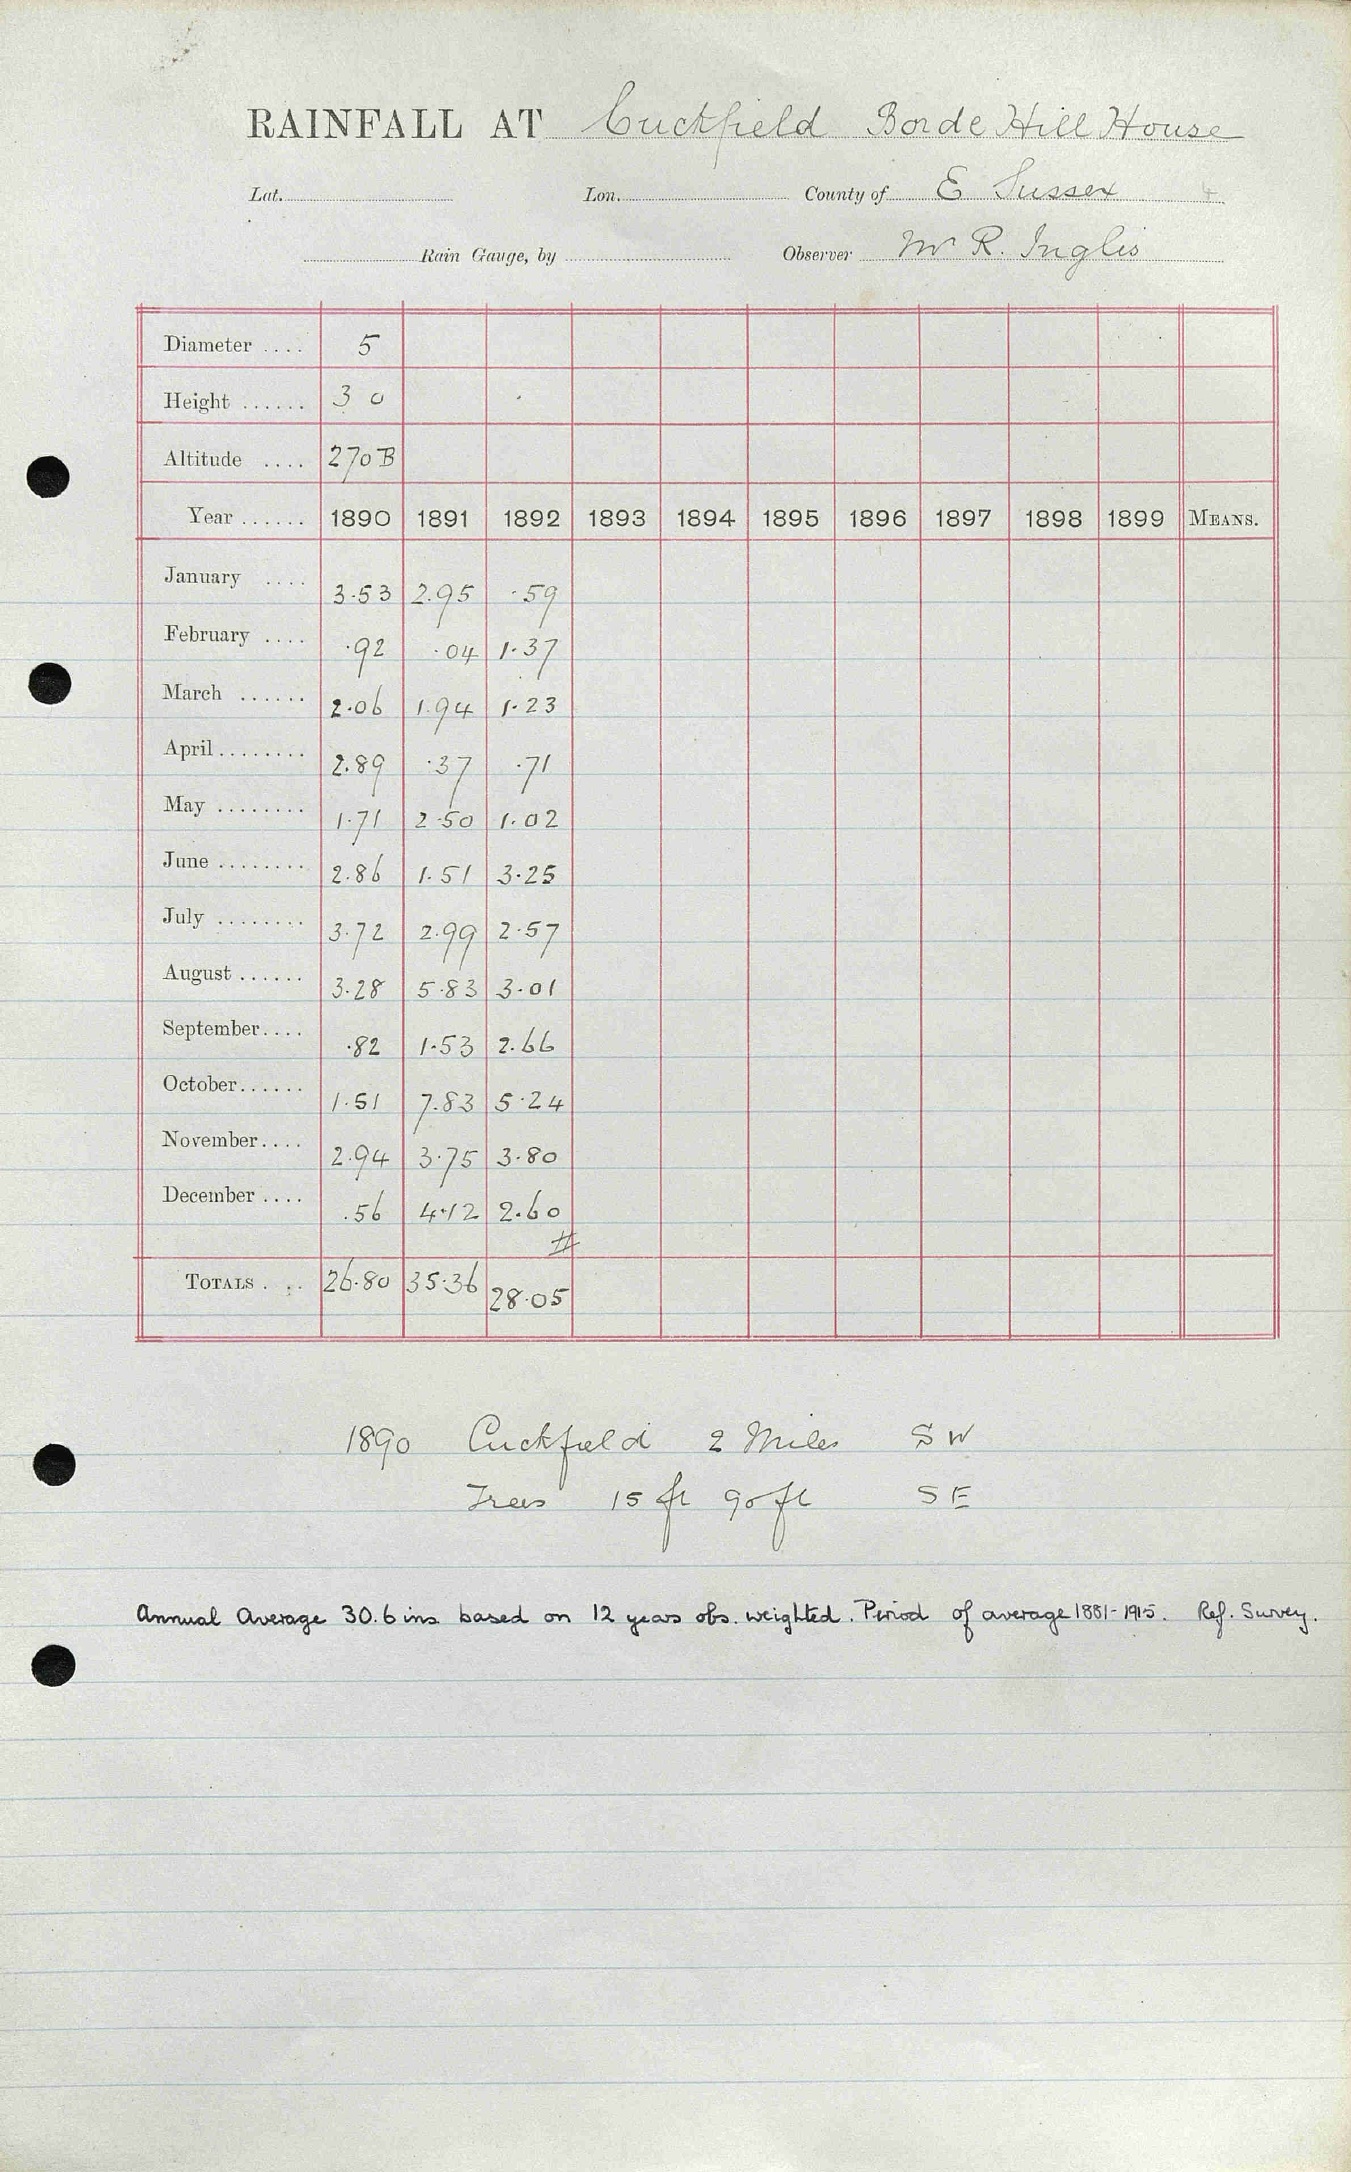 RAINFALL AT Cuckfield Borde Hill House
Lat. Lon. County of E Sussex 4
Rain Gauge, by Observer Mr R. Inglis
Diameter .... 5
Height ...... 3 0
Altitude .... 270 B
Year ...... 1890 1891 1892 1893 1894 1895 1896 1897 1898 1899 MEANS.
January .... 3.53 2.95 .59
February .... .92 .04 1.37
March ...... 2.06 1.94 1.23
April ........ 2.89 .37 .71
May ........ 1.71 2.50 1.02
June ........ 2.86 1.51 3.25
July ........ 3.72 2.99 2.57
August ...... 3.28 5.83 3.01
September.... .82 1.53 2.66
October...... 1.51 7.83 5.24
November.... 2.94 3.75 3.80
December .... .56 4.12 2.60
#
TOTALS . .. 26.80 35.36 28.05
1890 Cuckfield 2 Miles SW
Trees 15 ft 90 ft SE
Annual Average 30.6 ins based on 12 years obs. weighted. Period of average 1881-1915. Ref. Survey.